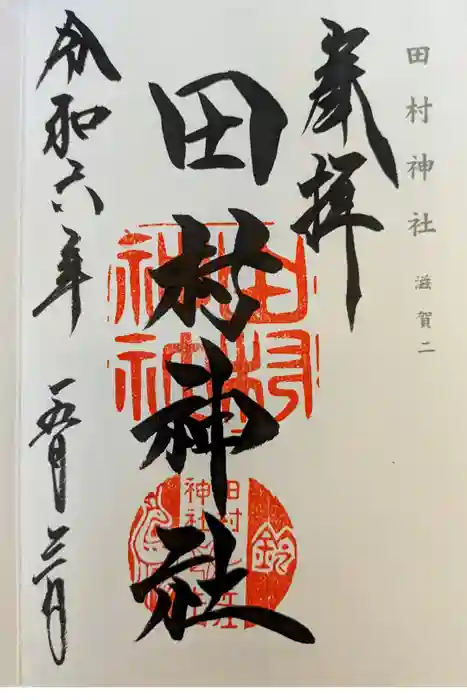 田村神社 滋賀二
奉拝
田村神社
令和六年 五月
田村
神社
田村
神社
鈴